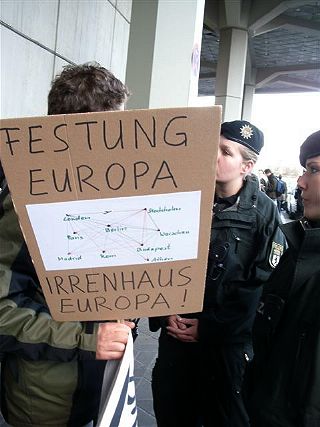 FESTUNG
EUROPA
London Stockholm
Paris Berlin Warschau
Budapest
Madrid Rom Athen
IRRENHAUS
EUROPA!